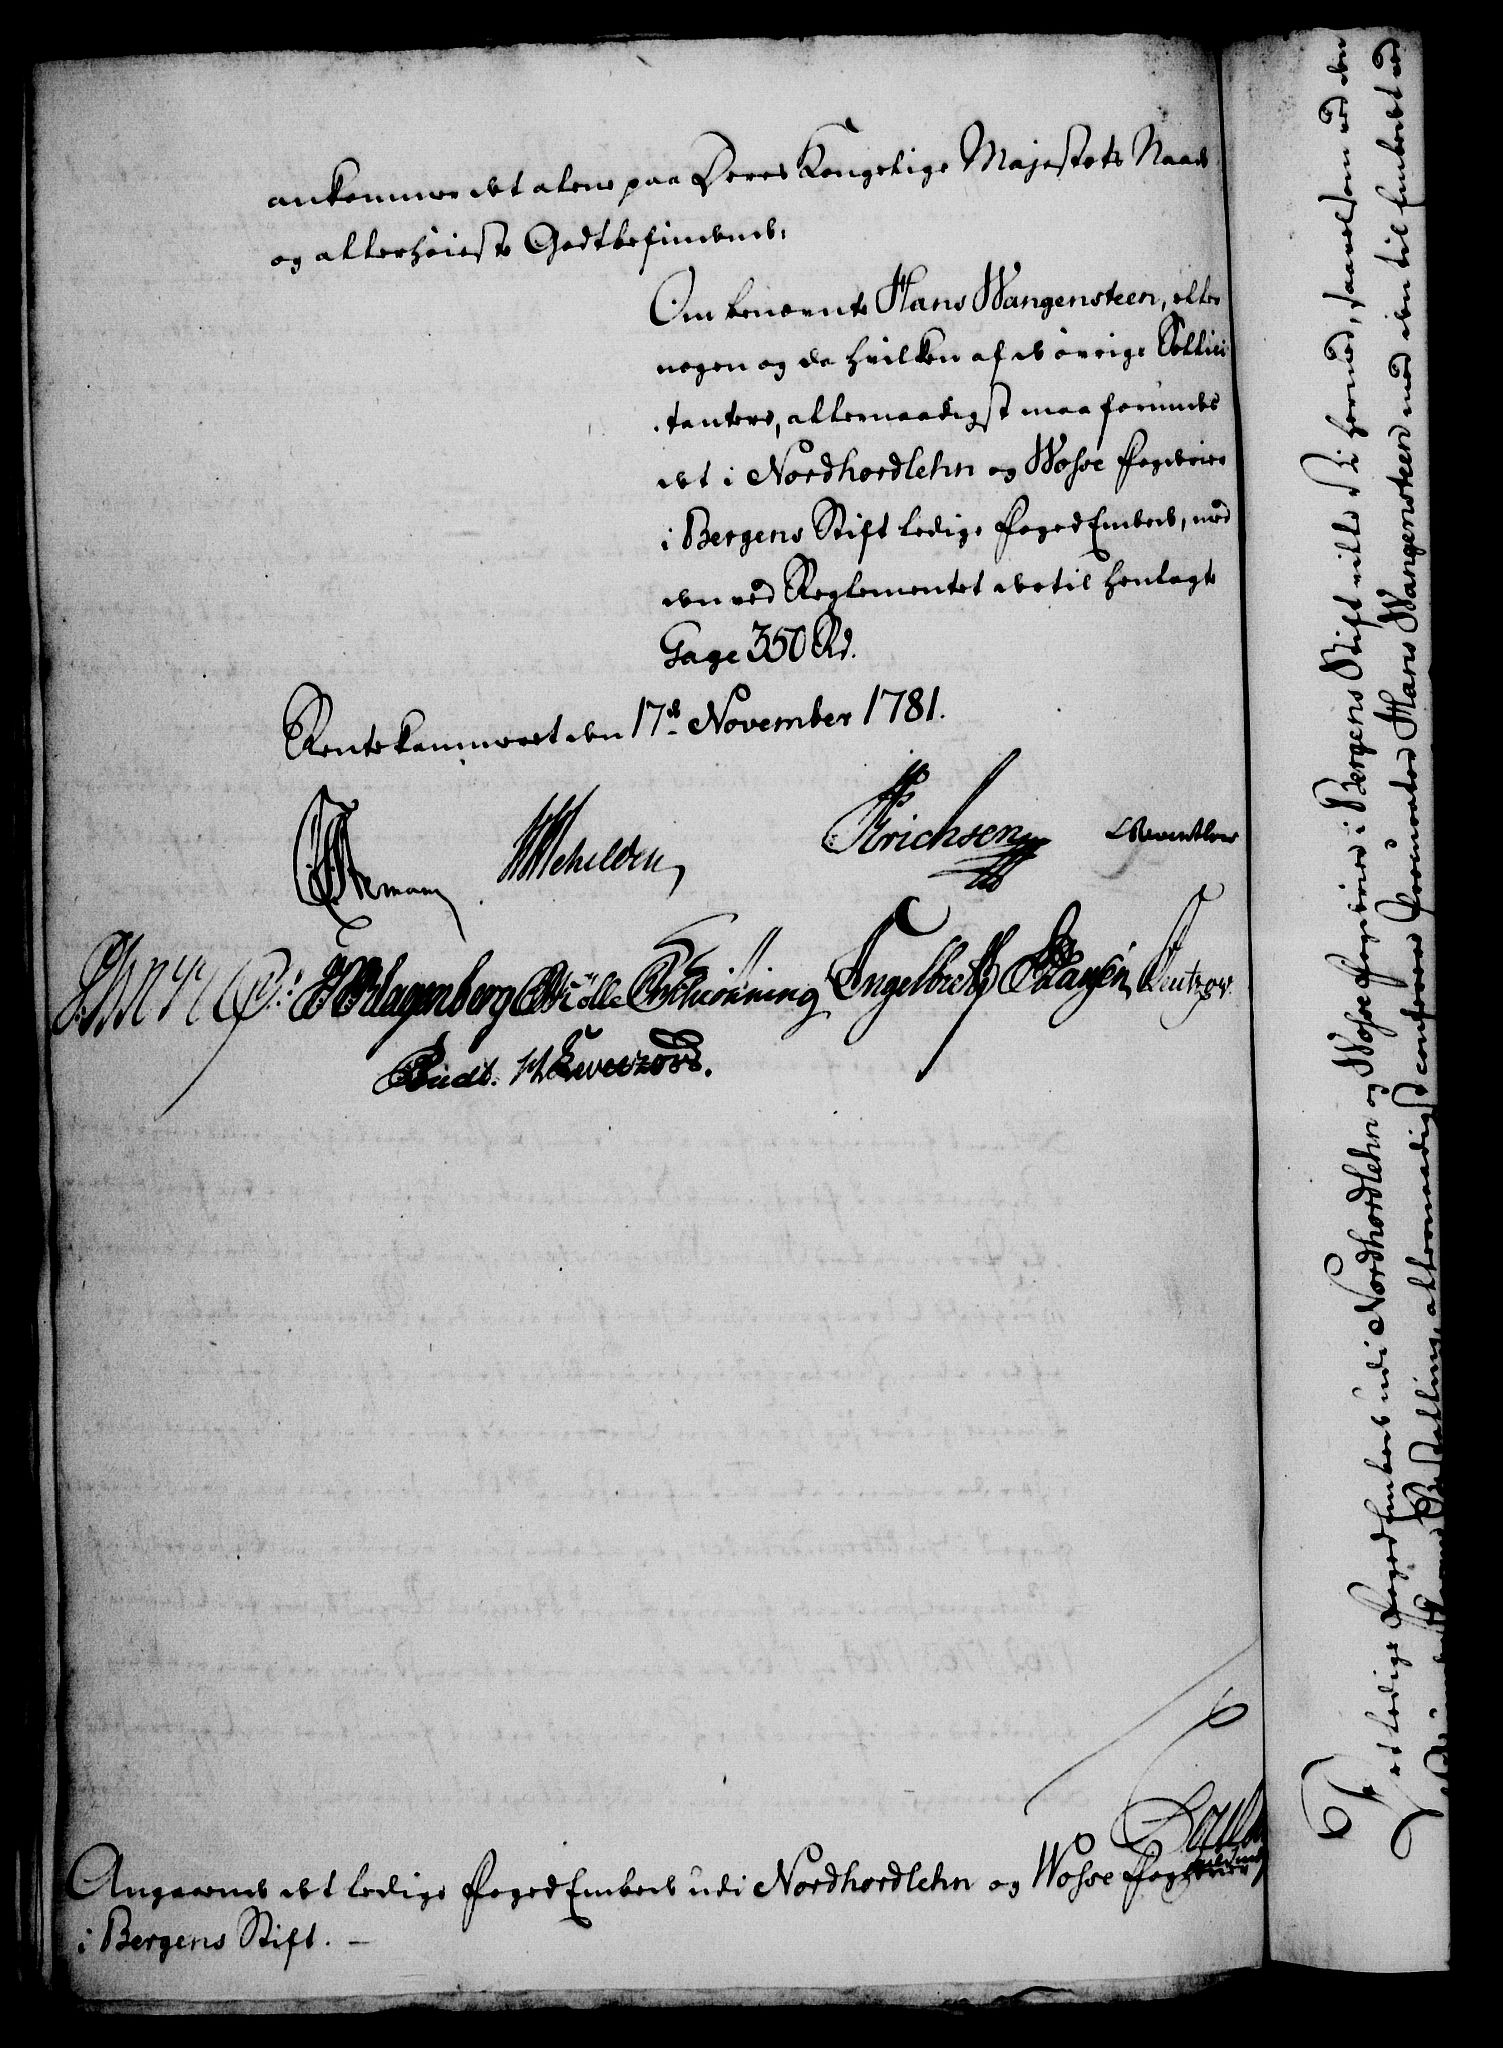 ankommer det alene paa Deres Kongelige Majestets Naade
og allerhøieste Godtbefindende:
Om benævnte Hans Wangensteen, eller
nogen og da hvilken af de øvrige Sollici
tantere, allernaadigst maa forundes
det i Nordhordlehn og Wosse Fogderie
i Bergens Stift ledige Foged Embede, med
den ved Reglementet dertil henlagte
Gage 350 Rd.
Rentekammeret den 17de November 1781.
Stemann Schilden Erichsen Reventlow
Klagenberg Mølle Schiønning Engelbreth Haagen Lützow
Budtz
Angaaende det ledige Foged Embede udi Nordhordlehn og Wosse Fogderier
i Bergens Stift. –
Det ledige Foged Embede udi Nordhordlehn og Wosse Fogderier i Bergens Stift ville Vi hermed, saavelsom ved den
Bestalling, allernaadigst conferere Procurator Hans Wangensteen med den til Embedet